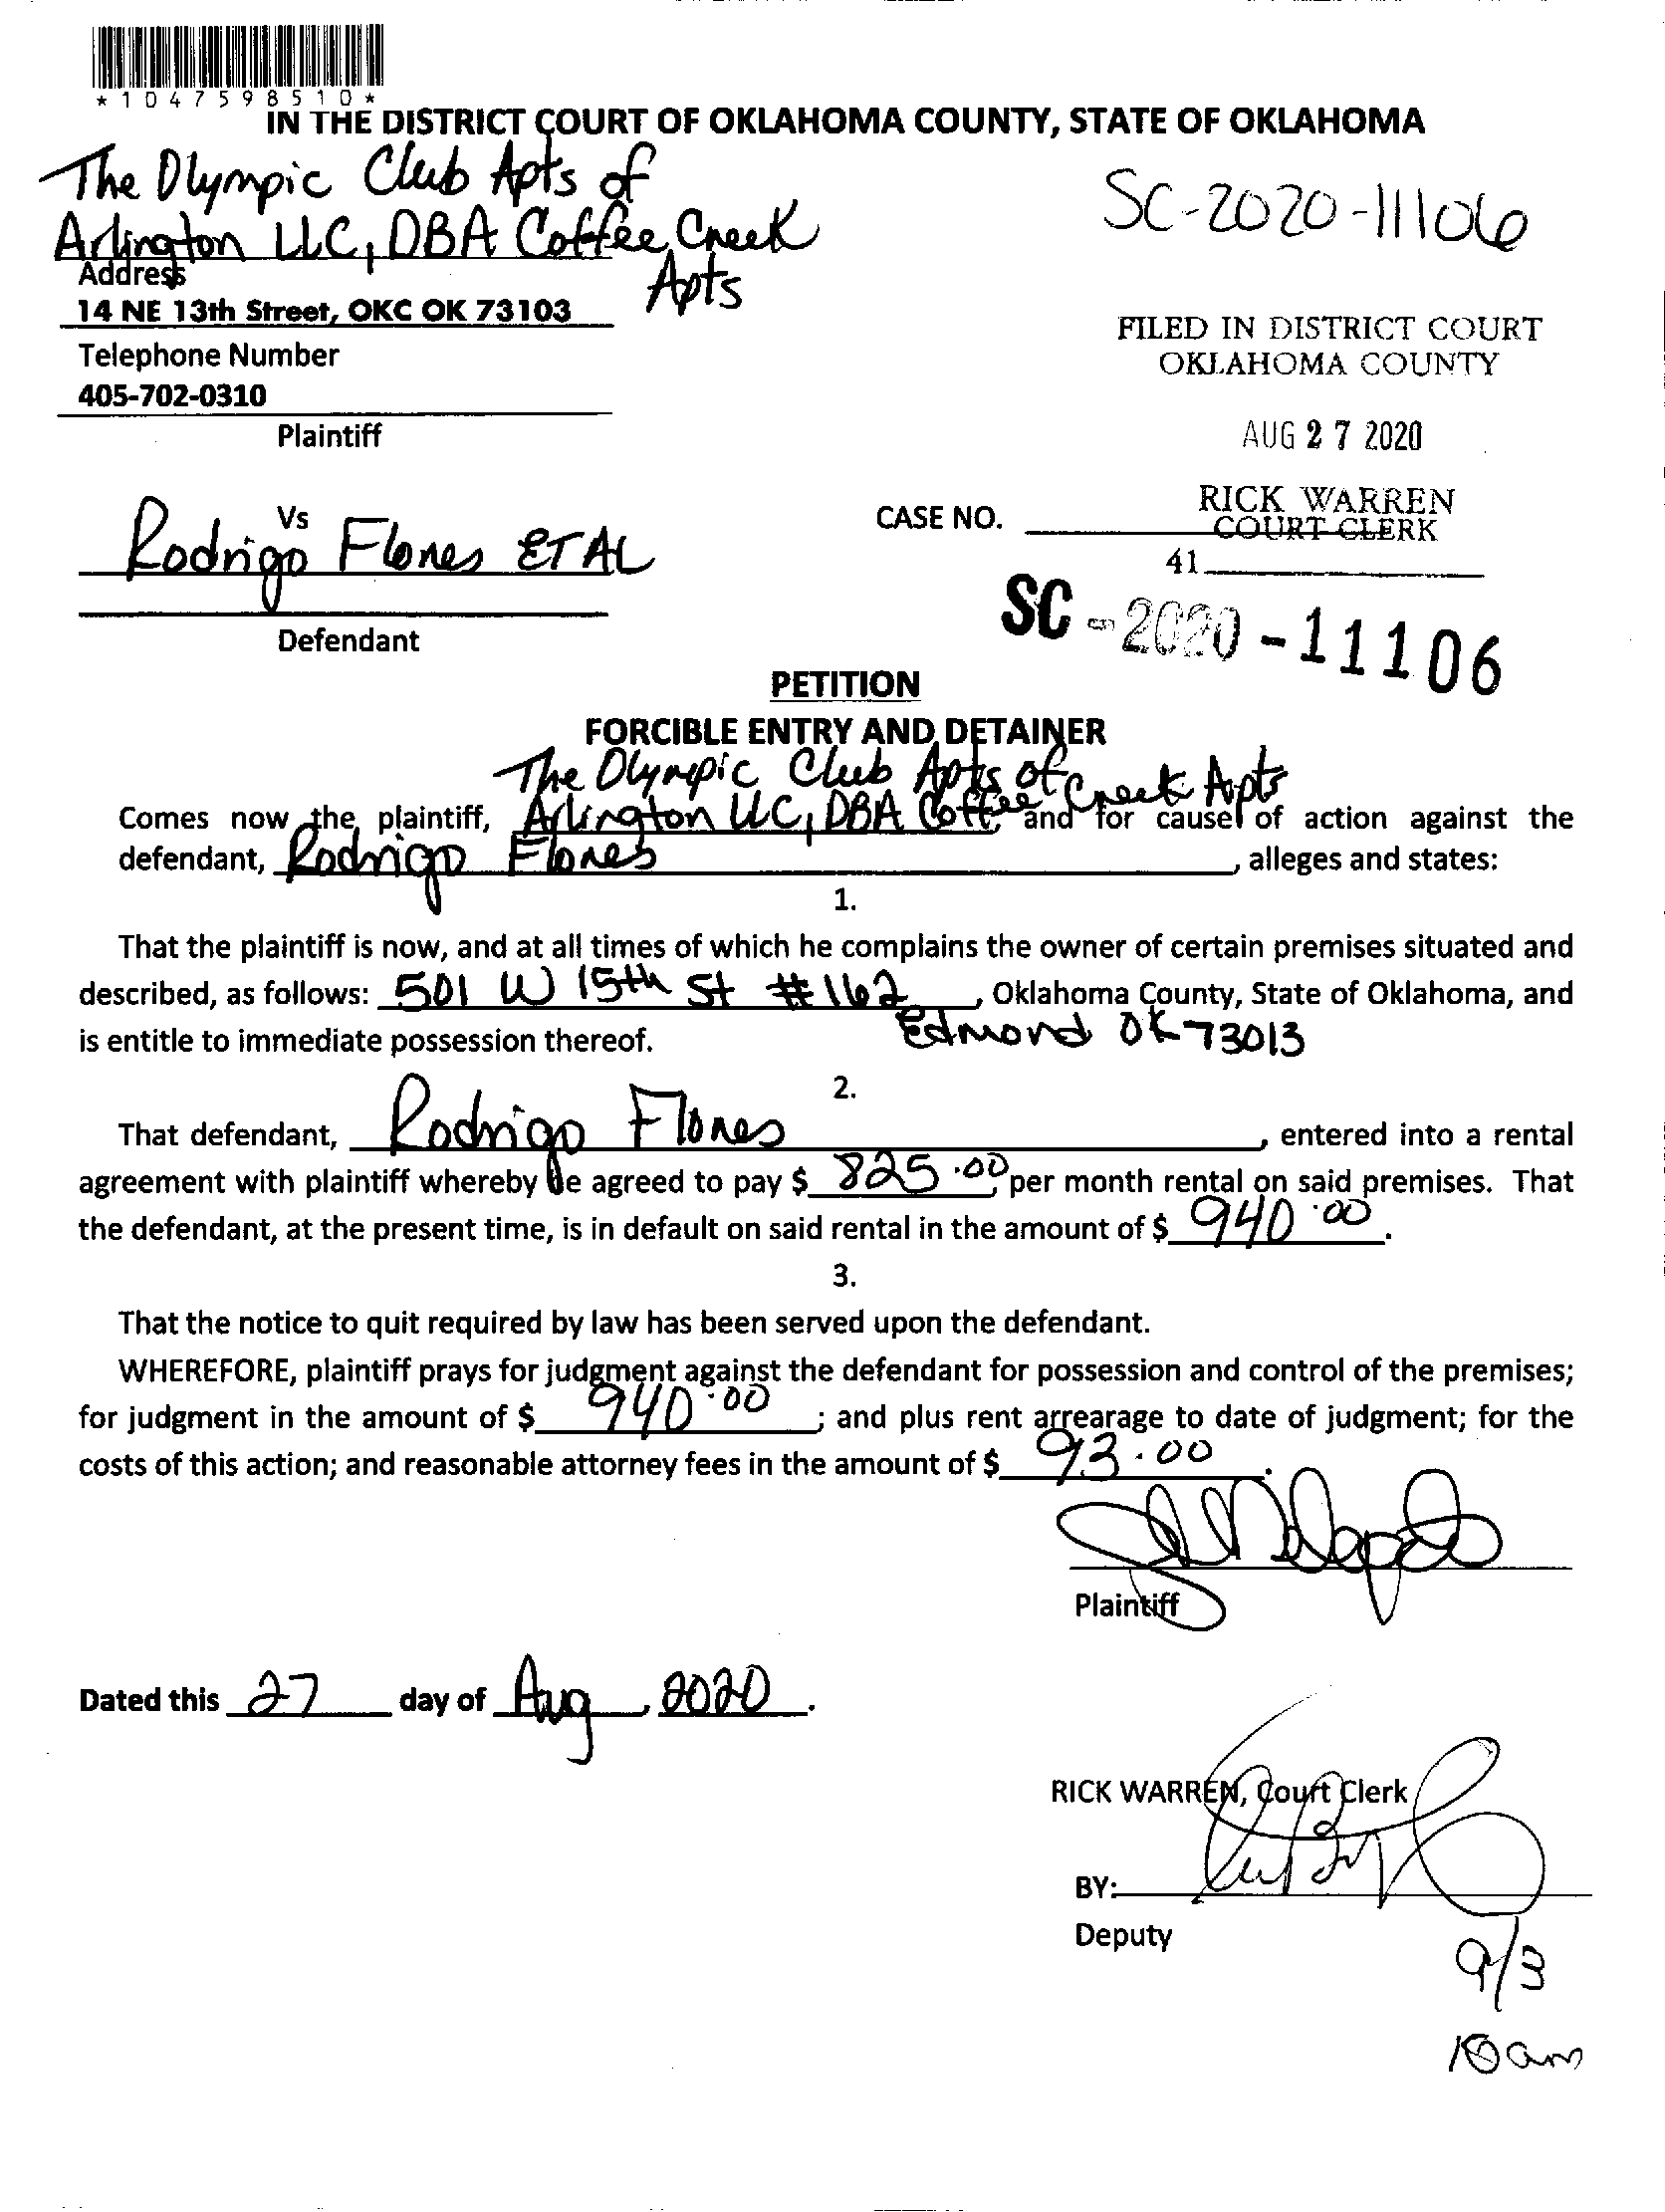 *1047598510*
IN THE DISTRICT COURT OF OKLAHOMA COUNTY, STATE OF OKLAHOMA
The Olympic Club Apts of
Arlington LLC, DBA Coffee Creek
Apts
SC-2020-11106
Address
14 NE 13th Street, OKC OK 73103
Telephone Number
405-702-0310
Plaintiff
FILED IN DISTRICT COURT
OKLAHOMA COUNTY
AUG 27 2020
RICK WARREN
COURT CLERK
41
Vs
Rodrigo Flores ET AL
Defendant
CASE NO.
SC-2020-11106
PETITION
FORCIBLE ENTRY AND DETAINER
The Olympic Club Apts of
Comes now the plaintiff, Arlington LLC, DBA Coffee Creek Apts and for cause of action against the
defendant, Rodrigo Flores, alleges and states:
1.
That the plaintiff is now, and at all times of which he complains the owner of certain premises situated and
described, as follows: 501 W 15th St #162, Oklahoma County, State of Oklahoma, and
is entitle to immediate possession thereof. Edmond OK 73013
2.
That defendant, Rodrigo Flores, entered into a rental
agreement with plaintiff whereby he agreed to pay $ 825.00 per month rental on said premises. That
the defendant, at the present time, is in default on said rental in the amount of $ 940.00.
3.
That the notice to quit required by law has been served upon the defendant.
WHEREFORE, plaintiff prays for judgment against the defendant for possession and control of the premises;
for judgment in the amount of $ 940.00; and plus rent arrearage to date of judgment; for the
costs of this action; and reasonable attorney fees in the amount of $ 93.00.
Plaintiff
Dated this 27 day of Aug, 2020.
RICK WARREN, Court Clerk
BY:
Deputy
9/3
10am